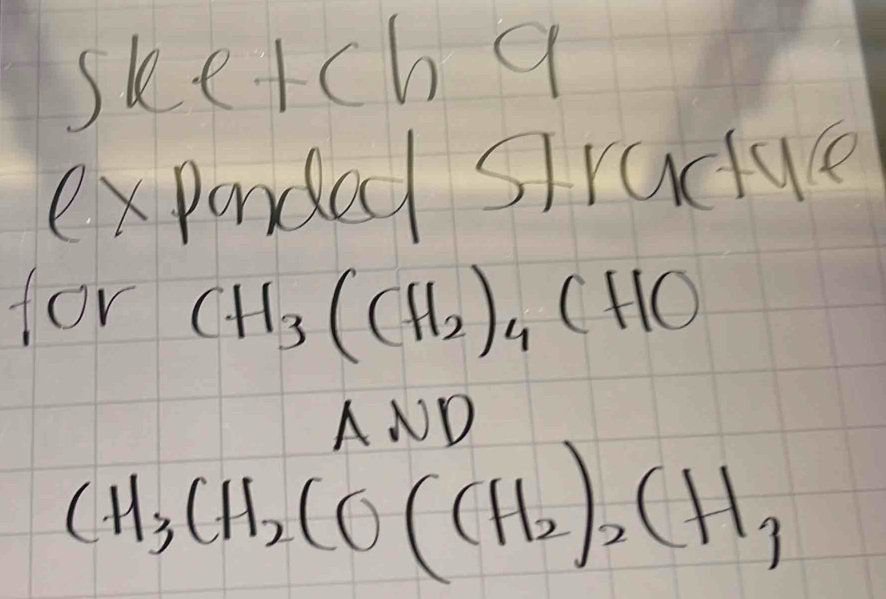 sketch a
expanded structure
for CH₃(CH₂)₄CHO
AND
CH₃CH₂CO(CH₂)₂CH₃